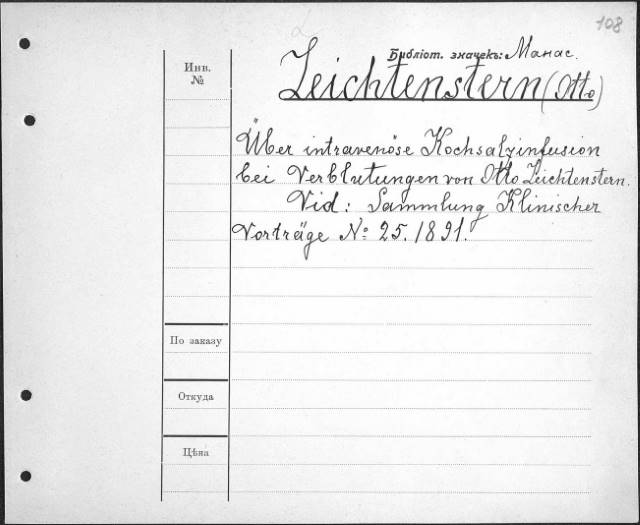 108
Библіот. значекъ: Манас.
Инв.
№
Leichtenstern (Otto)
Über intravenöse Kochsalzinfusion
bei Verblutungen von Otto Leichtenstern.
Vid: Sammlung Klinischer
Vorträge No 25. 1891.
По заказу
Откуда
Цѣна